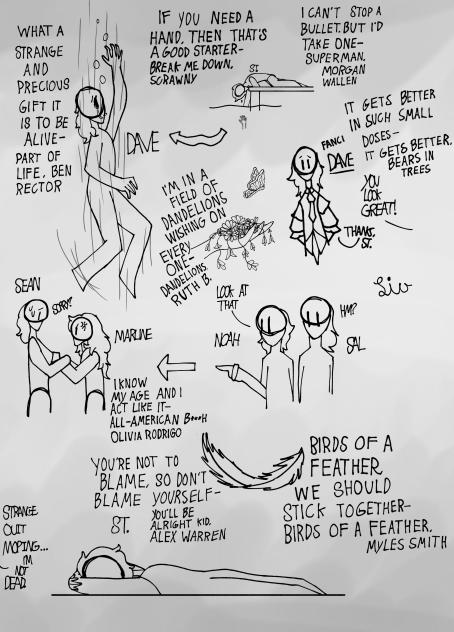 WHAT A
STRANGE
AND
PRECIOUS
GIFT IT
IS TO BE
ALIVE-
PART OF
LIFE, BEN
RECTOR
IF YOU NEED A
HAND, THEN THAT'S
A GOOD STARTER-
BREAK ME DOWN,
SCRAWNY
ST.
I CAN'T STOP A
BULLET, BUT I'D
TAKE ONE-
SUPERMAN,
MORGAN
WALLEN
DAVE
IT GETS BETTER
IN SUCH SMALL
DOSES-
IT GETS BETTER,
BEARS IN
TREES
FANCI
DAVE
YOU
LOOK
GREAT!
THANKS,
ST.
I'M IN A
FIELD OF
DANDELIONS
WISHING ON
EVERY
ONE-
DANDELIONS,
RUTH B.
Liv
SEAN
SORRY?
MARLINE
LOOK AT
THAT
NOAH
HM?
SAL
I KNOW
MY AGE AND I
ACT LIKE IT-
ALL-AMERICAN B***H
OLIVIA RODRIGO
YOU'RE NOT TO
BLAME, SO DON'T
BLAME YOURSELF-
YOU'LL BE
ALRIGHT KID,
ALEX WARREN
ST.
BIRDS OF A
FEATHER,
WE SHOULD
STICK TOGETHER-
BIRDS OF A FEATHER,
MYLES SMITH
STRANGE
QUIT
MOPING...
I'M
NOT
DEAD.